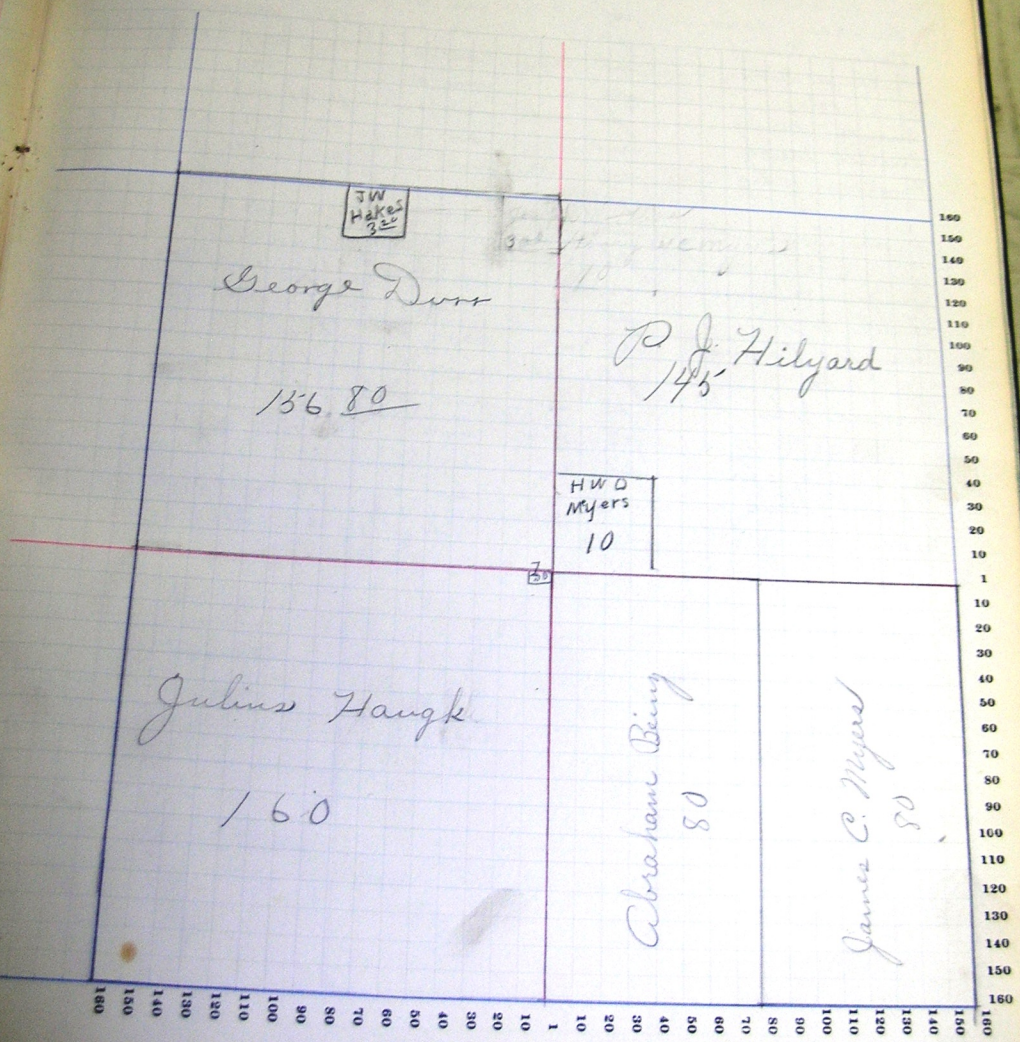 JW
Hakes
3 20
George Durr
156 80
P. J. Hilyard
145
HWD
Myers
10
Julius Haugk
160
Abraham Being
80
James C. Myers
80
160
150
140
130
120
110
100
90
80
70
60
50
40
30
20
10
1
10
20
30
40
50
60
70
80
90
100
110
120
130
140
150
160
180 150 140 130 120 110 100 90 80 70 60 50 40 30 20 10 1 10 20 30 40 50 60 70 80 90 100 110 120 130 140 150 160